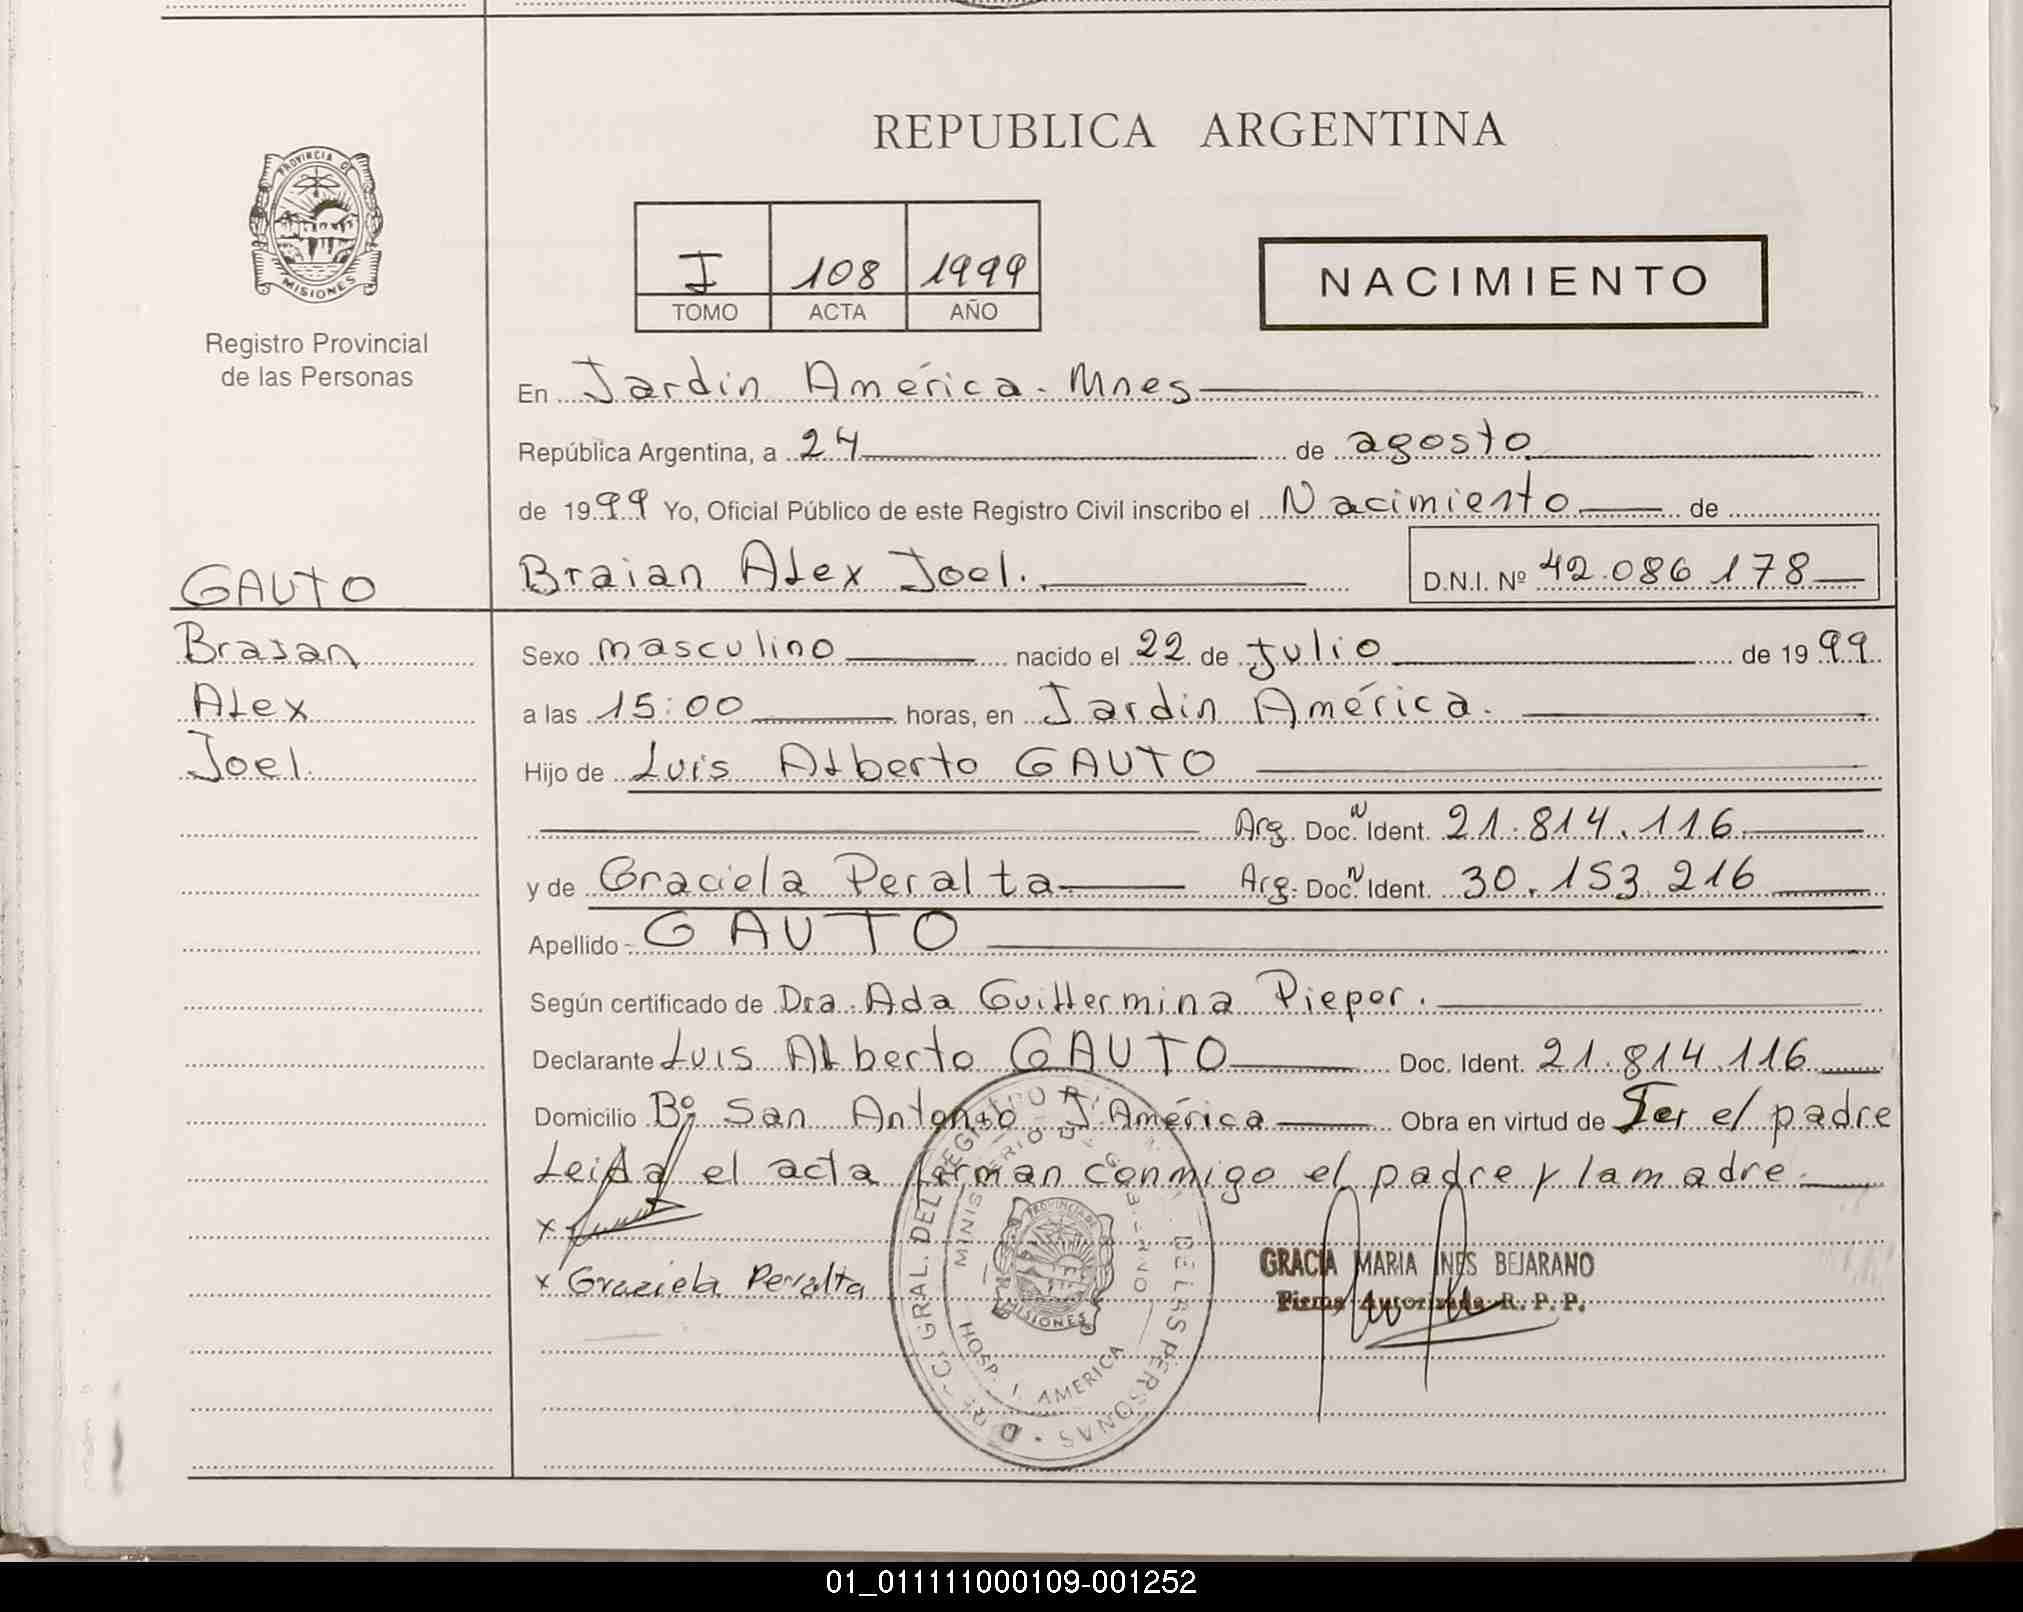 REPUBLICA ARGENTINA
PROVINCIA DE
MISIONES
Registro Provincial
de las Personas
I 108 1999
TOMO ACTA AÑO
NACIMIENTO
En Jardin América - Mnes
República Argentina, a 24 de agosto
de 1999 Yo, Oficial Público de este Registro Civil inscribo el Nacimiento de
Braian Alex Joel. D.N.I. Nº 42.086.178
GAUTO
Braian
Alex
Joel.
Sexo masculino nacido el 22 de Julio de 1999
a las 15:00 horas, en Jardin América.
Hijo de Luis Alberto GAUTO
Arg. Doc. N Ident. 21.814.116
y de Graciela Peralta Arg. Doc. N Ident. 30.153.216
Apellido GAUTO
Según certificado de Dra. Ada Guillermina Pieper.
Declarante Luis Alberto GAUTO Doc. Ident. 21.814.116
Domicilio Bº San Antonio J. América Obra en virtud de Ser el padre
Leida el acta firman conmigo el padre y la madre.
x
x Graciela Peralta
GRACIA MARIA INES BEJARANO
Firma Autorizada R. P. P.
GRAL. DEL REGISTRO DE LAS PERSONAS
MINISTERIO DE GOBIERNO
PROVINCIA DE
MISIONES
HOSP. J. AMERICA
01_011111000109-001252